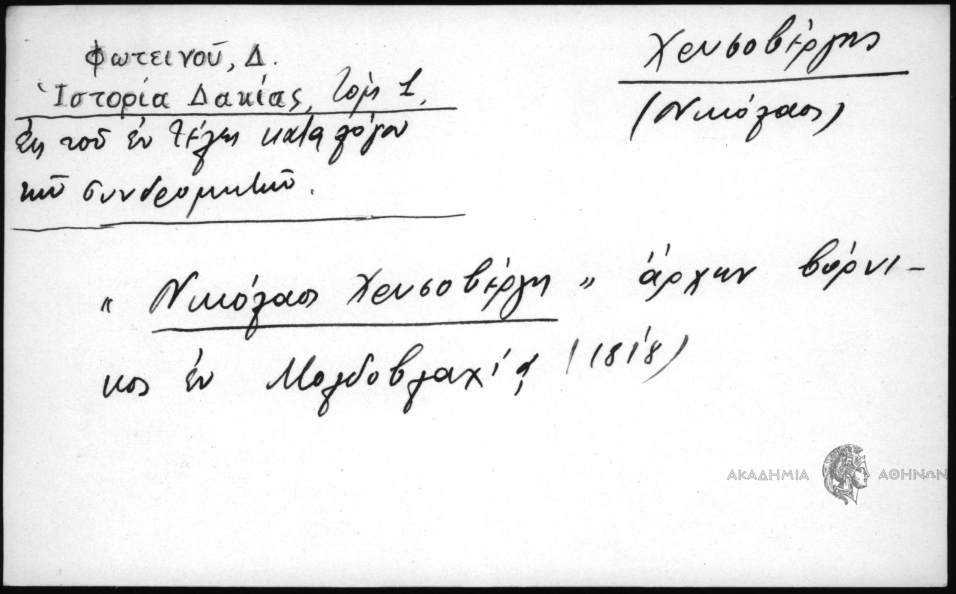 Φωτεινοῦ, Δ.
Ἱστορία Δακίας, Τόμ 1,
Ἐκ τοῦ ἐν τέλει καταλόγου
τῶν συνδρομητῶν.
Χρυσοβέργης
(Νικόλαος)
"Νικόλαος Χρυσοβέργης" ἄρχων βόρνι-
κος ἐν Μολδοβλαχίᾳ (1818)
ΑΚΑΔΗΜΙΑ ΑΘΗΝΩΝ